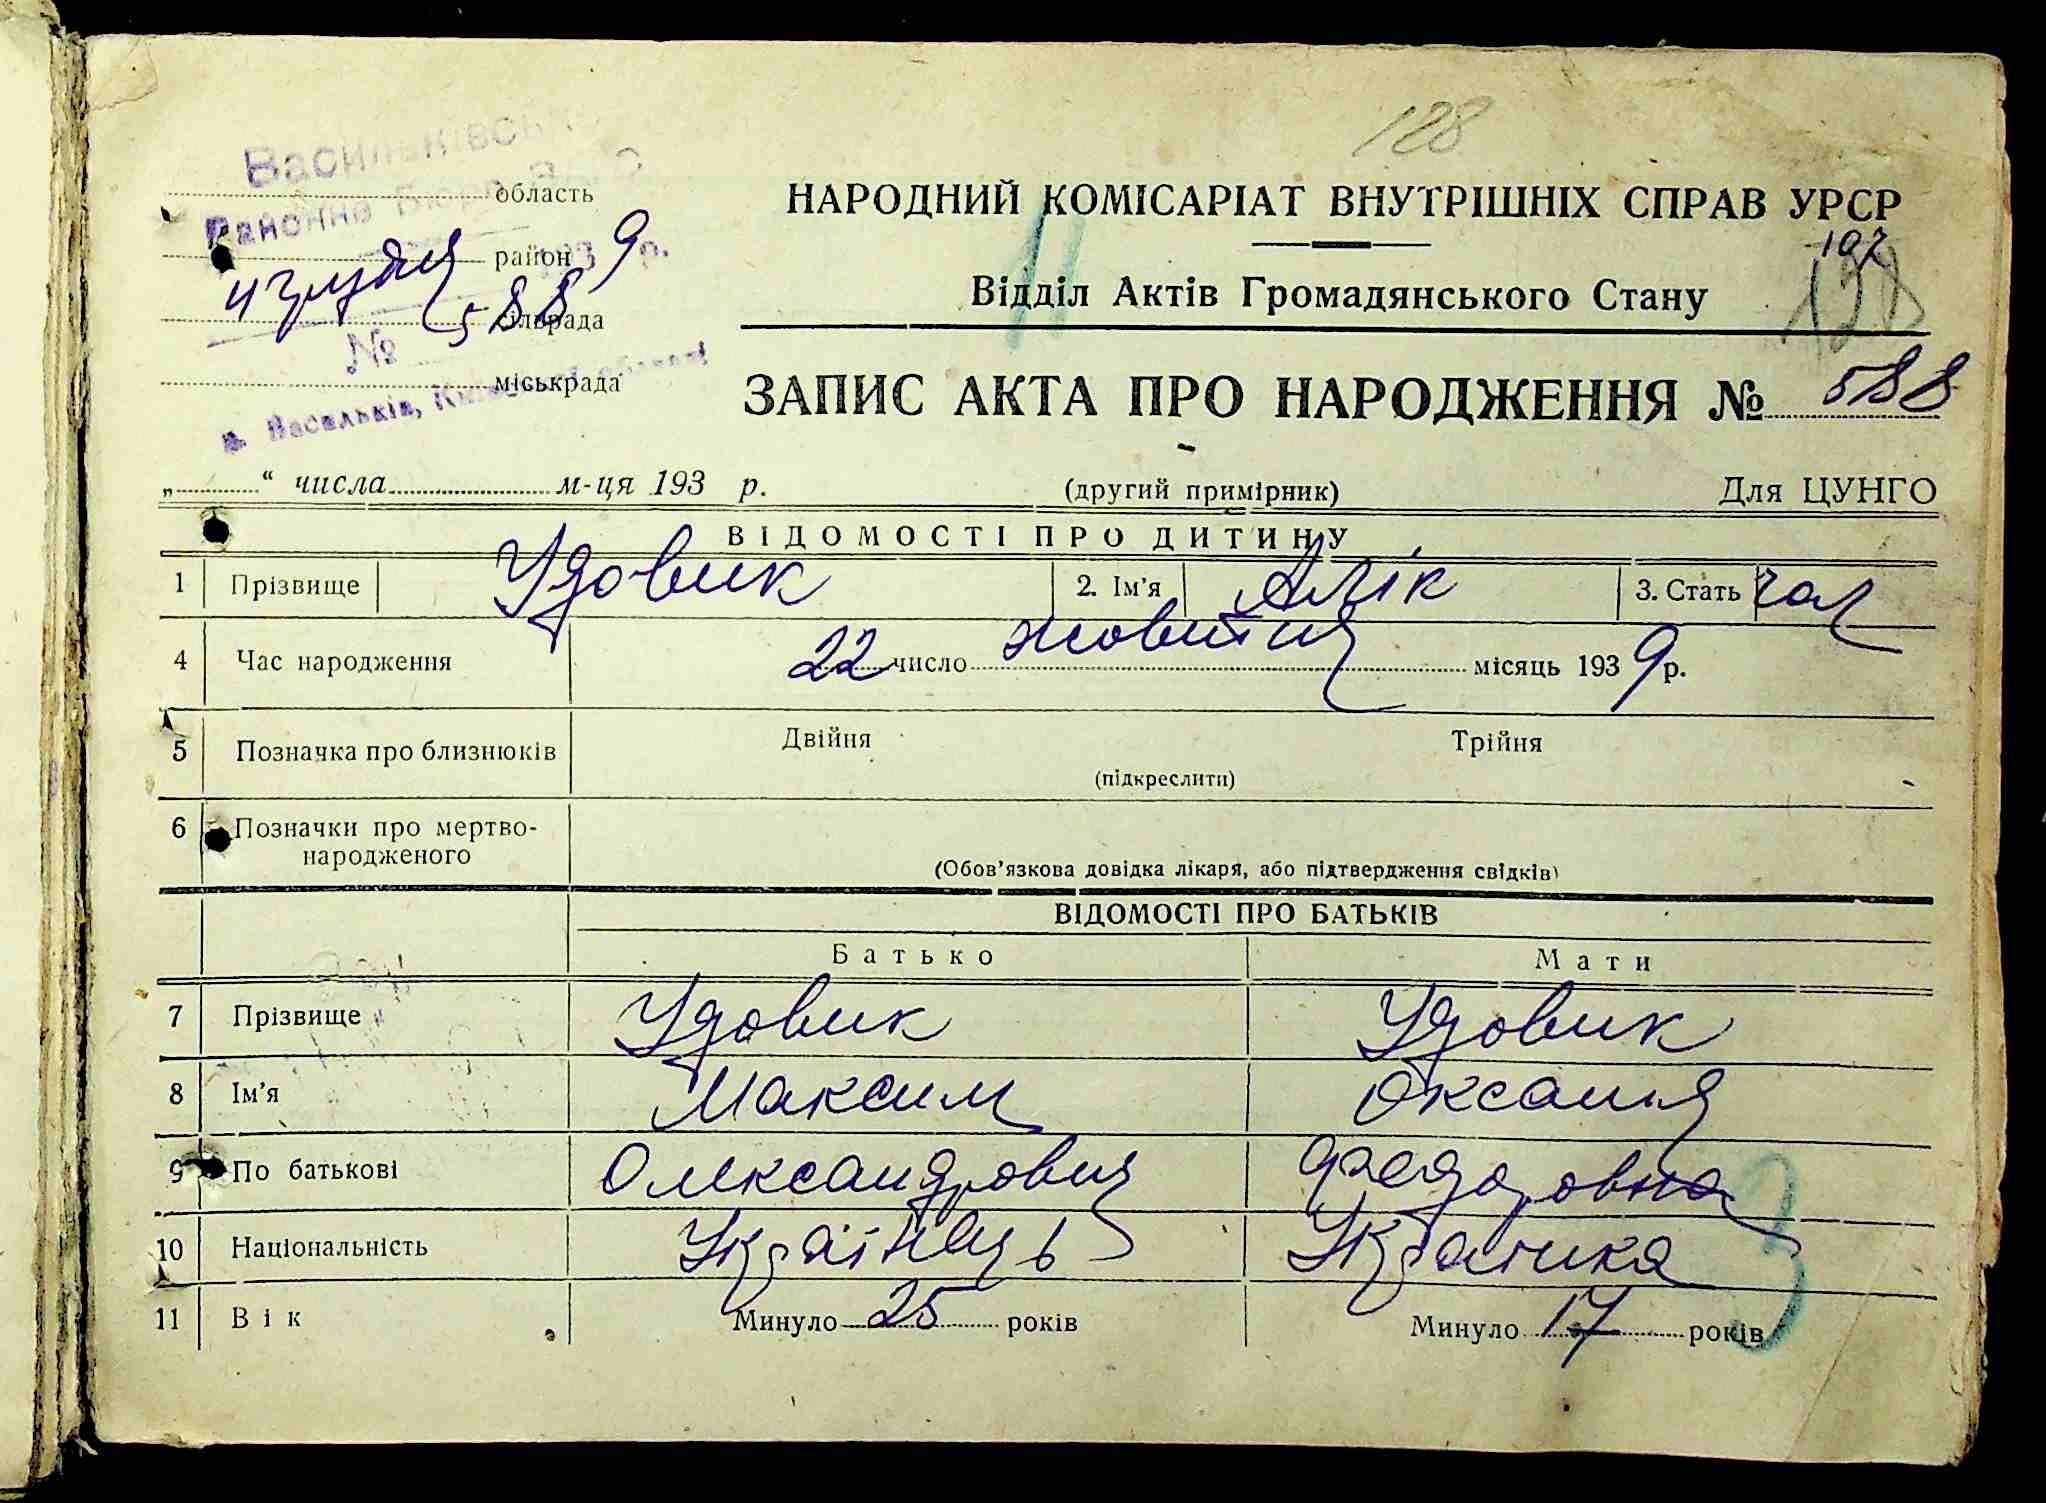 128
Васильківське
область
НАРОДНИЙ КОМІСАРІАТ ВНУТРІШНІХ СПРАВ УРСР
Районне Бюро ЗАГС
район 193 9 р.
107
Відділ Актів Громадянського Стану
128
сільрада
№ 588
міськрада
м. Васильків, Київської області
ЗАПИС АКТА ПРО НАРОДЖЕННЯ № 588
„ “ числа м-ця 193 р.
(другий примірник)
Для ЦУНГО
ВІДОМОСТІ ПРО ДИТИНУ
1 Прізвище Удовик 2. Ім’я Алік 3. Стать чол
4 Час народження 22 число жовтня місяць 1939 р.
5 Позначка про близнюків Двійня Трійня
(підкреслити)
6 Позначки про мертво-
народженого
(Обов’язкова довідка лікаря, або підтвердження свідків)
ВІДОМОСТІ ПРО БАТЬКІВ
Батько Мати
7 Прізвище Удовик Удовик
8 Ім’я Максим Оксана
9 По батькові Олександрович Федоровна
10 Національність Українець Українка
11 Вік Минуло 25 років Минуло 17 років